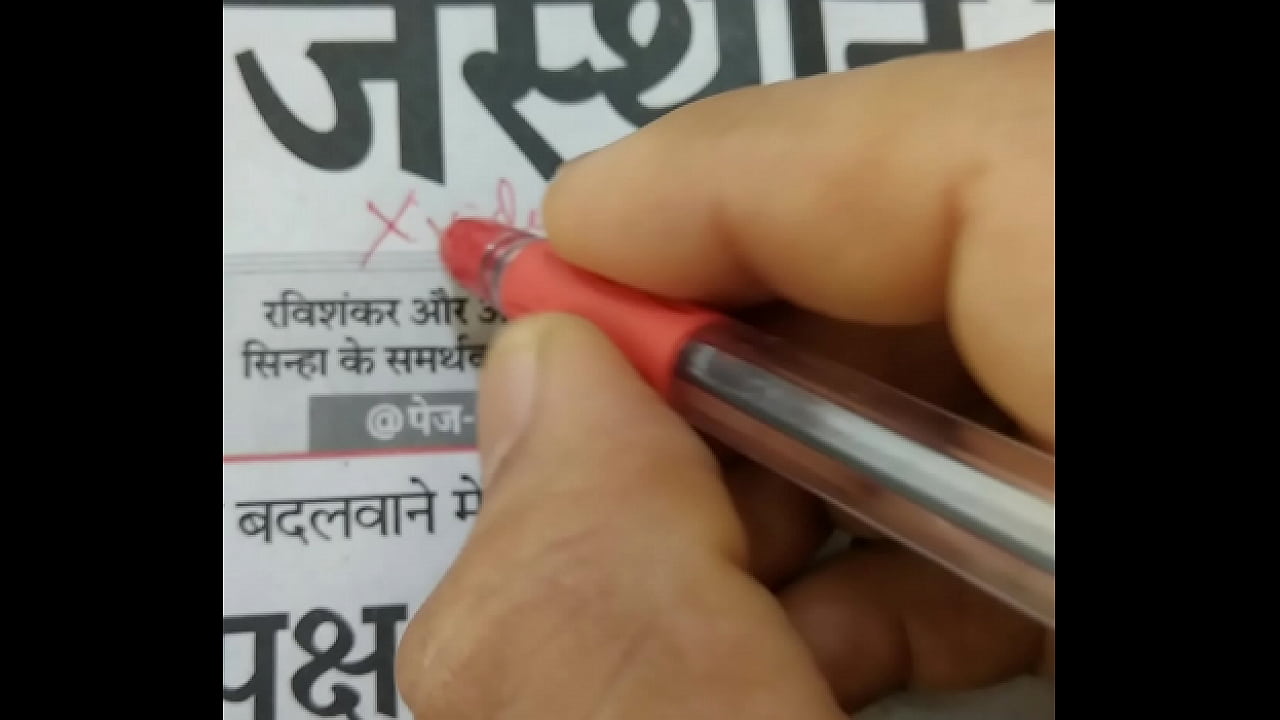 जस्थान
रविशंकर और
सिन्हा के समर्थक
@पेज-
बदलवाने में
पक्ष